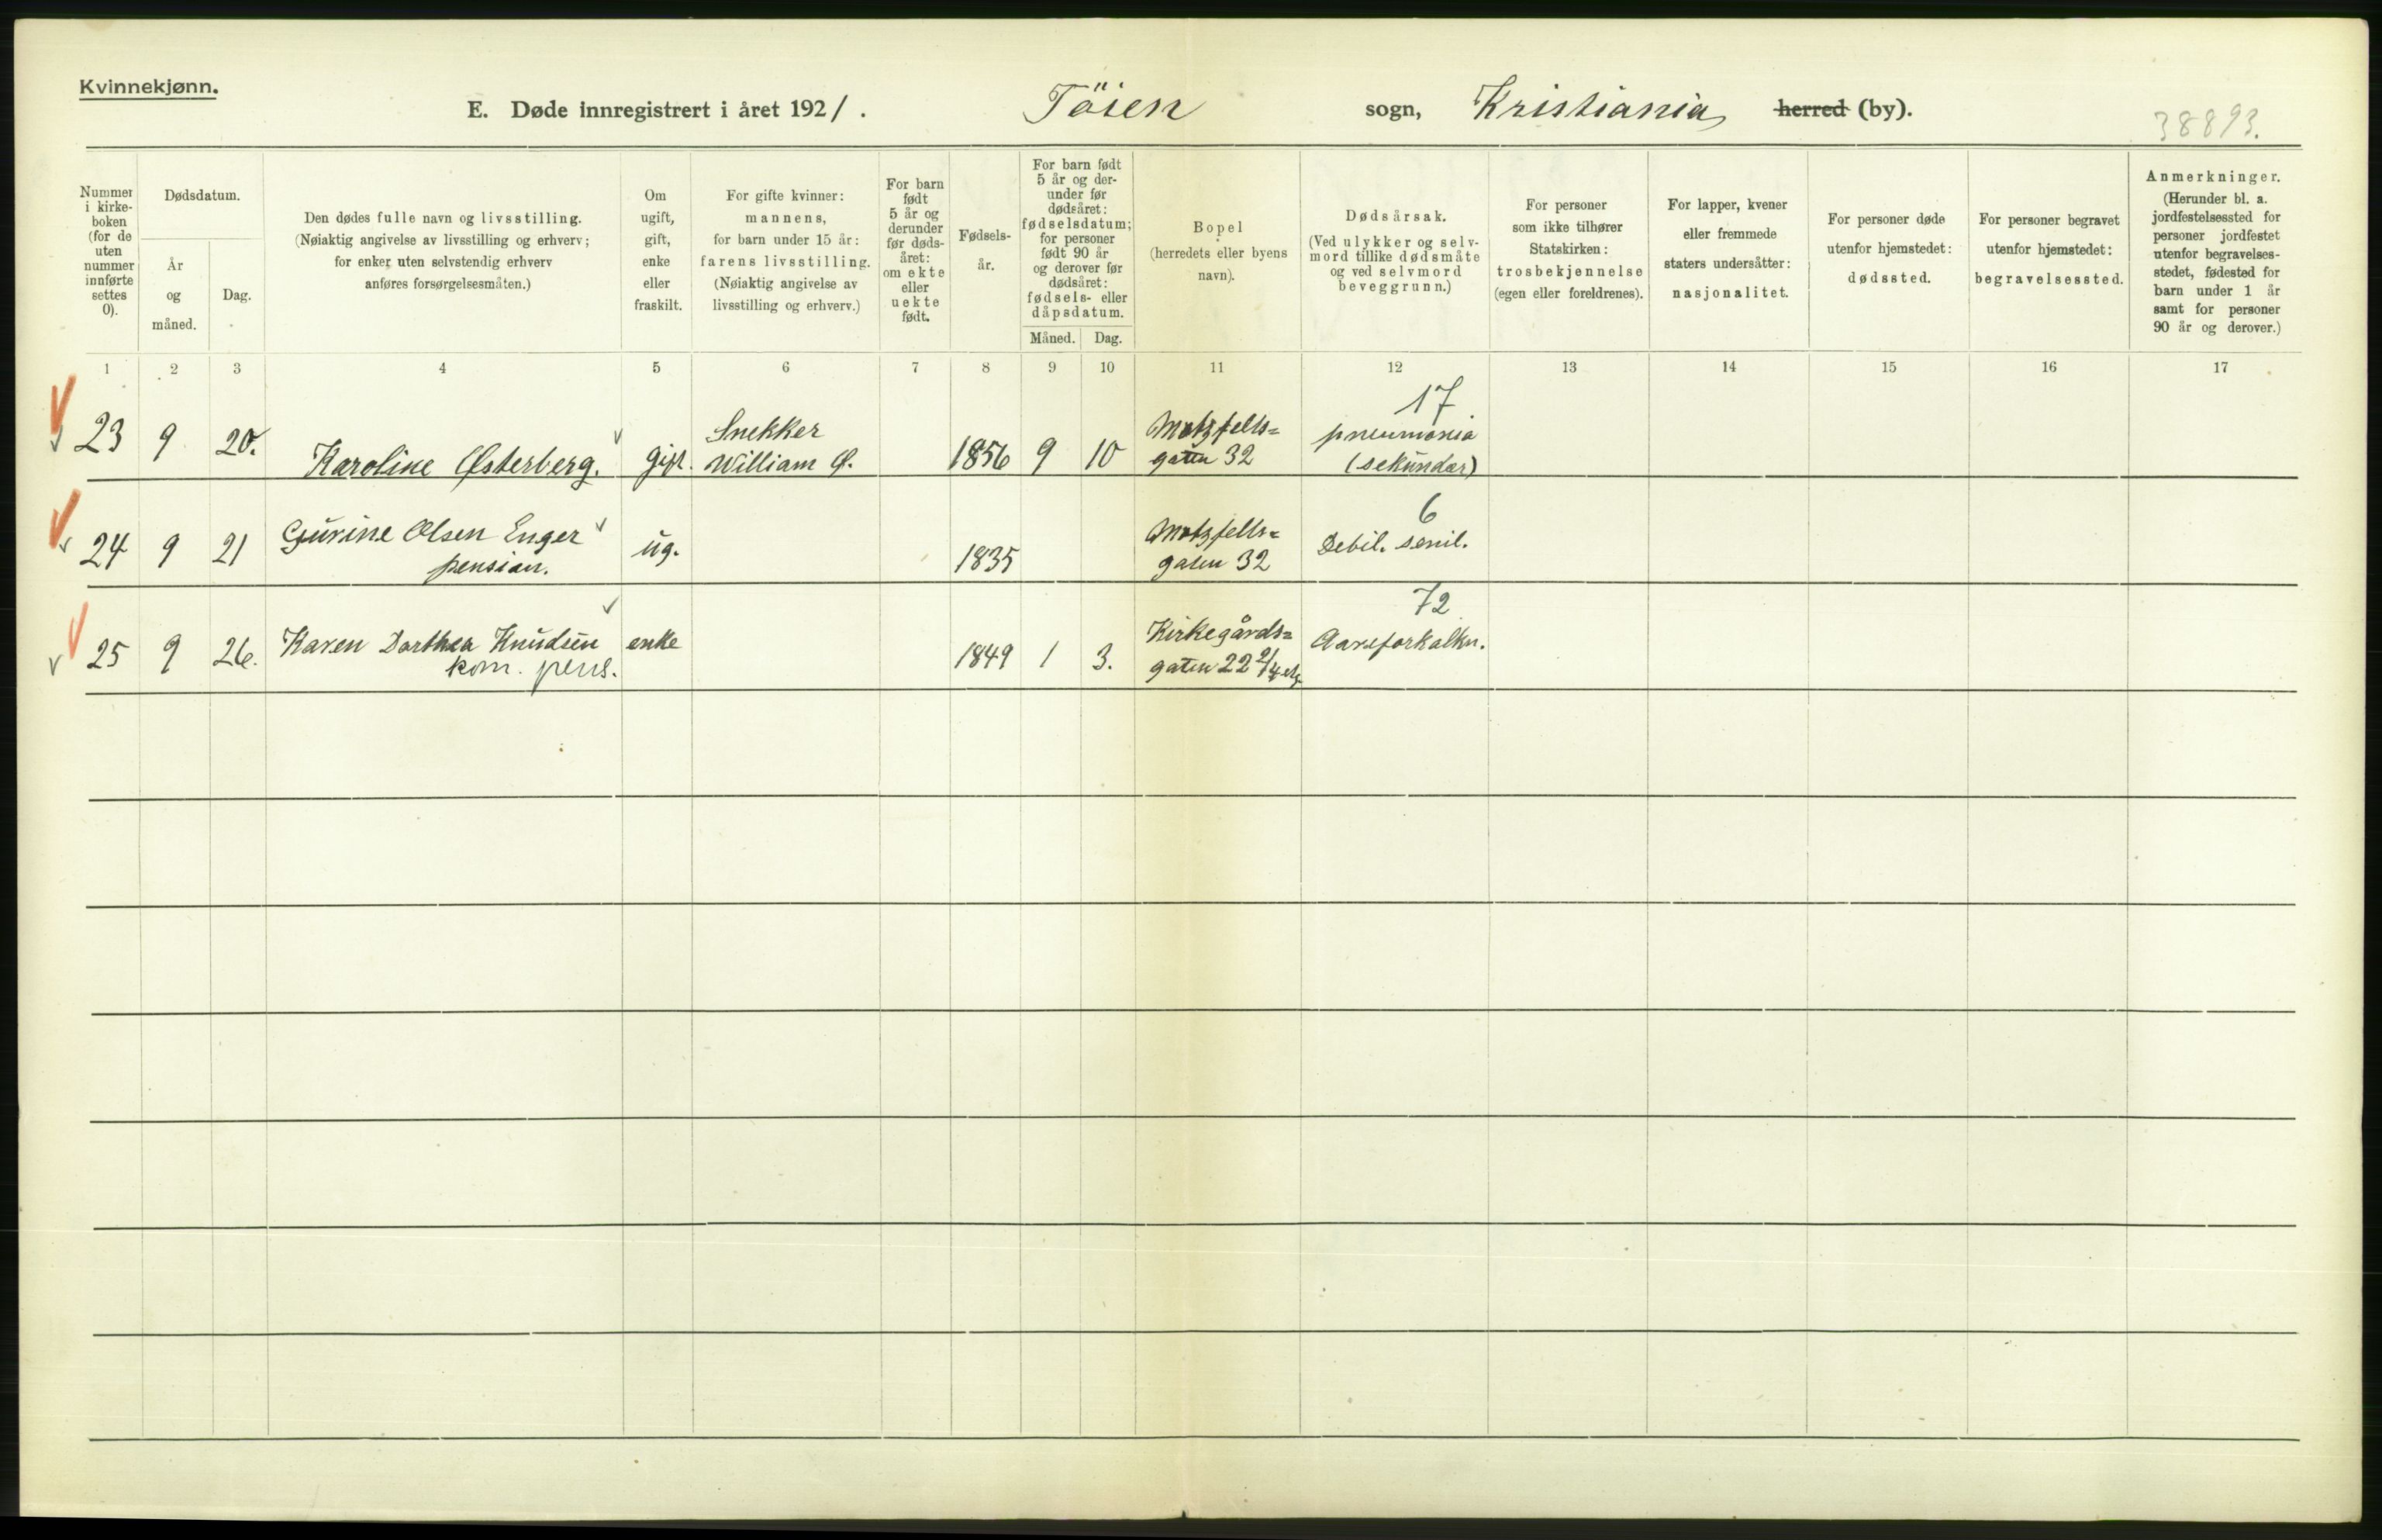 Kvinnekjønn.
E. Døde innregistrert i året 1921. Töien sogn, Kristiania herred (by).
38893.
Nummer i kirke-boken (for de uten nummer innførte settes 0).
Dødsdatum.
År og måned.
Dag.
Den dødes fulle navn og livsstilling.
(Nøiaktig angivelse av livsstilling og erhverv;
for enker uten selvstendig erhverv
anføres forsørgelsesmåten.)
Om
ugift,
gift,
enke
eller
fraskilt.
For gifte kvinner:
mannens,
for barn under 15 år:
farens livsstilling.
(Nøiaktig angivelse av
livsstilling og erhverv.)
For barn
født
5 år og
derunder
før døds-
året:
om ekte
eller
uekte
født.
Fødsels-
år.
For barn født
5 år og der-
under før
dødsåret:
fødselsdatum;
for personer
født 90 år
og derover før
dødsåret:
fødsels- eller
dåpsdatum.
Måned. Dag.
Bopel
(herredets eller byens
navn).
Dødsårsak.
(Ved ulykker og selv-
mord tillike dødsmåte
og ved selvmord
beveggrunn.)
For personer
som ikke tilhører
Statskirken:
trosbekjennelse
(egen eller foreldrenes).
For lapper, kvener
eller fremmede
staters undersåtter:
nasjonalitet.
For personer døde
utenfor hjemstedet:
dødssted.
For personer begravet
utenfor hjemstedet:
begravelsessted.
Anmerkninger.
(Herunder bl. a.
jordfestelsessted for
personer jordfestet
utenfor begravelses-
stedet, fødested for
barn under 1 år
samt for personer
90 år og derover.)
1 2 3 4 5 6 7 8 9 10 11 12 13 14 15 16 17
17
Snekker Motzfelts= pneumonia
23 9 20. Karoline Østerberg. gift. William Ø. 1856 9 10 gaten 32 (sekundær)
6
24 9 21 Gurine Olsen Enger ug. 1835 Motzfelts= Debil. senil.
pension. gaten 32
72
25 9 26. Karen Dorthea Knudsen enke 1849 1 3. Kirkegårds= Aareforkalkn.
kom. pens. gaten 22 2/4 etg